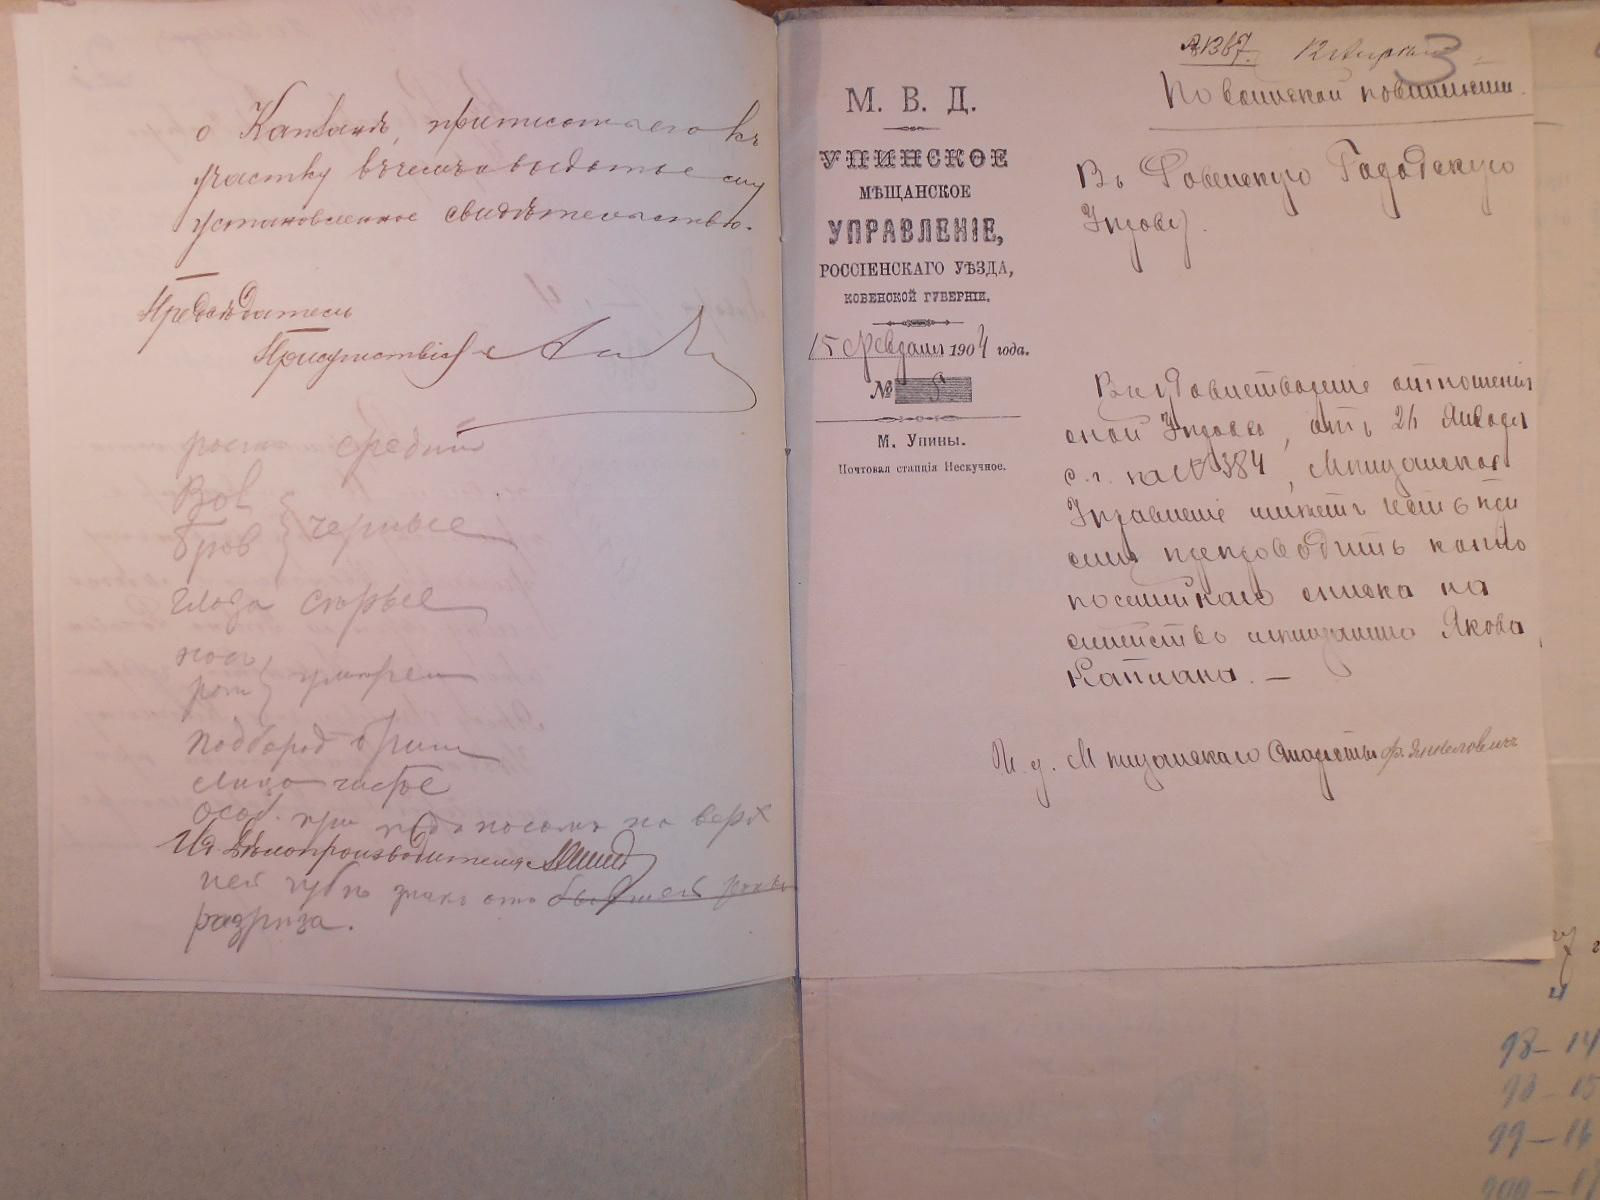 о Капланѣ, приписать его къ
участку въ чемъ и выдать ему
установленное свидѣтельство.
Предсѣдатель
Присутствія
ростъ средній
Вол
бров } черные
глаза сѣрые
носъ
ротъ } умѣрен
подбород
лицо чистое
особ. при подъ носомъ на верх
Ид Дѣлопроизводителя
ней губѣ знакъ отъ бывшей
разрѣза.
№ 1367. 12 Априля
3
По воинской повинности.
М. В. Д.
УПИНСКОЕ
МѢЩАНСКОЕ
УПРАВЛЕНІЕ,
РОССІЕНСКАГО УѢЗДА,
КОВЕНСКОЙ ГУБЕРНІИ.
15 Февраля 1904 года.
№
М. Упины.
Почтовая станція Нескучное.
Въ Ровенскую Городскую
Управу.
Въ удовлетвореніе отношенія
оной Управы, отъ 21 Января
с. г. за № 384, Мѣщанское
Управленіе имѣетъ честь при
семъ препроводить копію
посемейнаго списка на
семейство мѣщанина Якова
Каплана. —
И. д. Мѣщанскаго Старосты
98 – 14
98 – 15
99 – 16